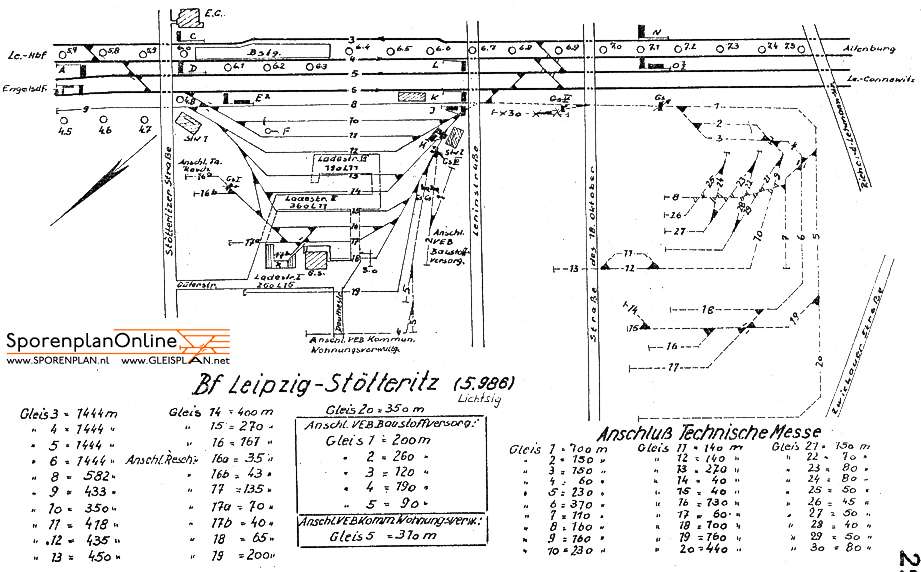 E.G.
C
N
3
Le.-Hbf
5.7
5.8
5.9
6.0
Bstg.
6.4
6.5
6.6
6.7
6.8
6.9
7.0
7.1
7.2
7.3
7.4
7.5
Altenburg
4
A
D
6.1
6.2
6.3
L
5
Le.-Connewitz
Engelsdf.
6
K
J
8
9
4.5
4.6
4.7
4.8
F
10
11
12
13
14
15
16
17
18
19
Stw 1
Ladestr. III
190 L 11
Ladestr. II
360 L 17
Ladestr. I
260 L 15
G.S.
Güterstr.
Stötteritzer Straße
Leninstraße
Straße des 18. Oktober
Zwickauer Straße
Anschl.
VEB
Baustoff-
versorg.
Anschl. VEB Kommun.
Wohnungsverwaltg.
SporenplanOnline
www.SPORENPLAN.nl www.GLEISPLAN.net
Bf Leipzig-Stötteritz (5.986)
Lichtsig
Gleis 3 = 1444 m
" 4 = 1444 "
" 5 = 1444 "
" 6 = 1444 "
" 8 = 582 "
" 9 = 433 "
" 10 = 350 "
" 11 = 418 "
" 12 = 435 "
" 13 = 450 "
Gleis 14 = 400 m
" 15 = 270 "
" 16 = 167 "
Anschl. Resch: " 16a = 35 "
" 16b = 43 "
" 17 = 135 "
" 17a = 70 "
" 17b = 40 "
" 18 = 65 "
" 19 = 200 "
Gleis 20 = 350 m
Anschl. VEB Baustoffversorg.:
Gleis 1 = 200 m
" 2 = 260 "
" 3 = 120 "
" 4 = 190 "
" 5 = 90 "
Anschl. VEB Komm. Wohnungsverw.:
Gleis 5 = 310 m
Anschluß Technische Messe
Gleis 1 = 100 m
" 2 = 150 "
" 3 = 150 "
" 4 = 60 "
" 5 = 230 "
" 6 = 370 "
" 7 = 110 "
" 8 = 160 "
" 9 = 160 "
" 10 = 230 "
Gleis 11 = 140 m
" 12 = 140 "
" 13 = 270 "
" 14 = 40 "
" 15 = 40 "
" 16 = 130 "
" 17 = 60 "
" 18 = 100 "
" 19 = 160 "
" 20 = 440 "
Gleis 21 = 150 m
" 22 = 70 "
" 23 = 80 "
" 24 = 80 "
" 25 = 50 "
" 26 = 45 "
" 27 = 50 "
" 28 = 40 "
" 29 = 50 "
" 30 = 80 "